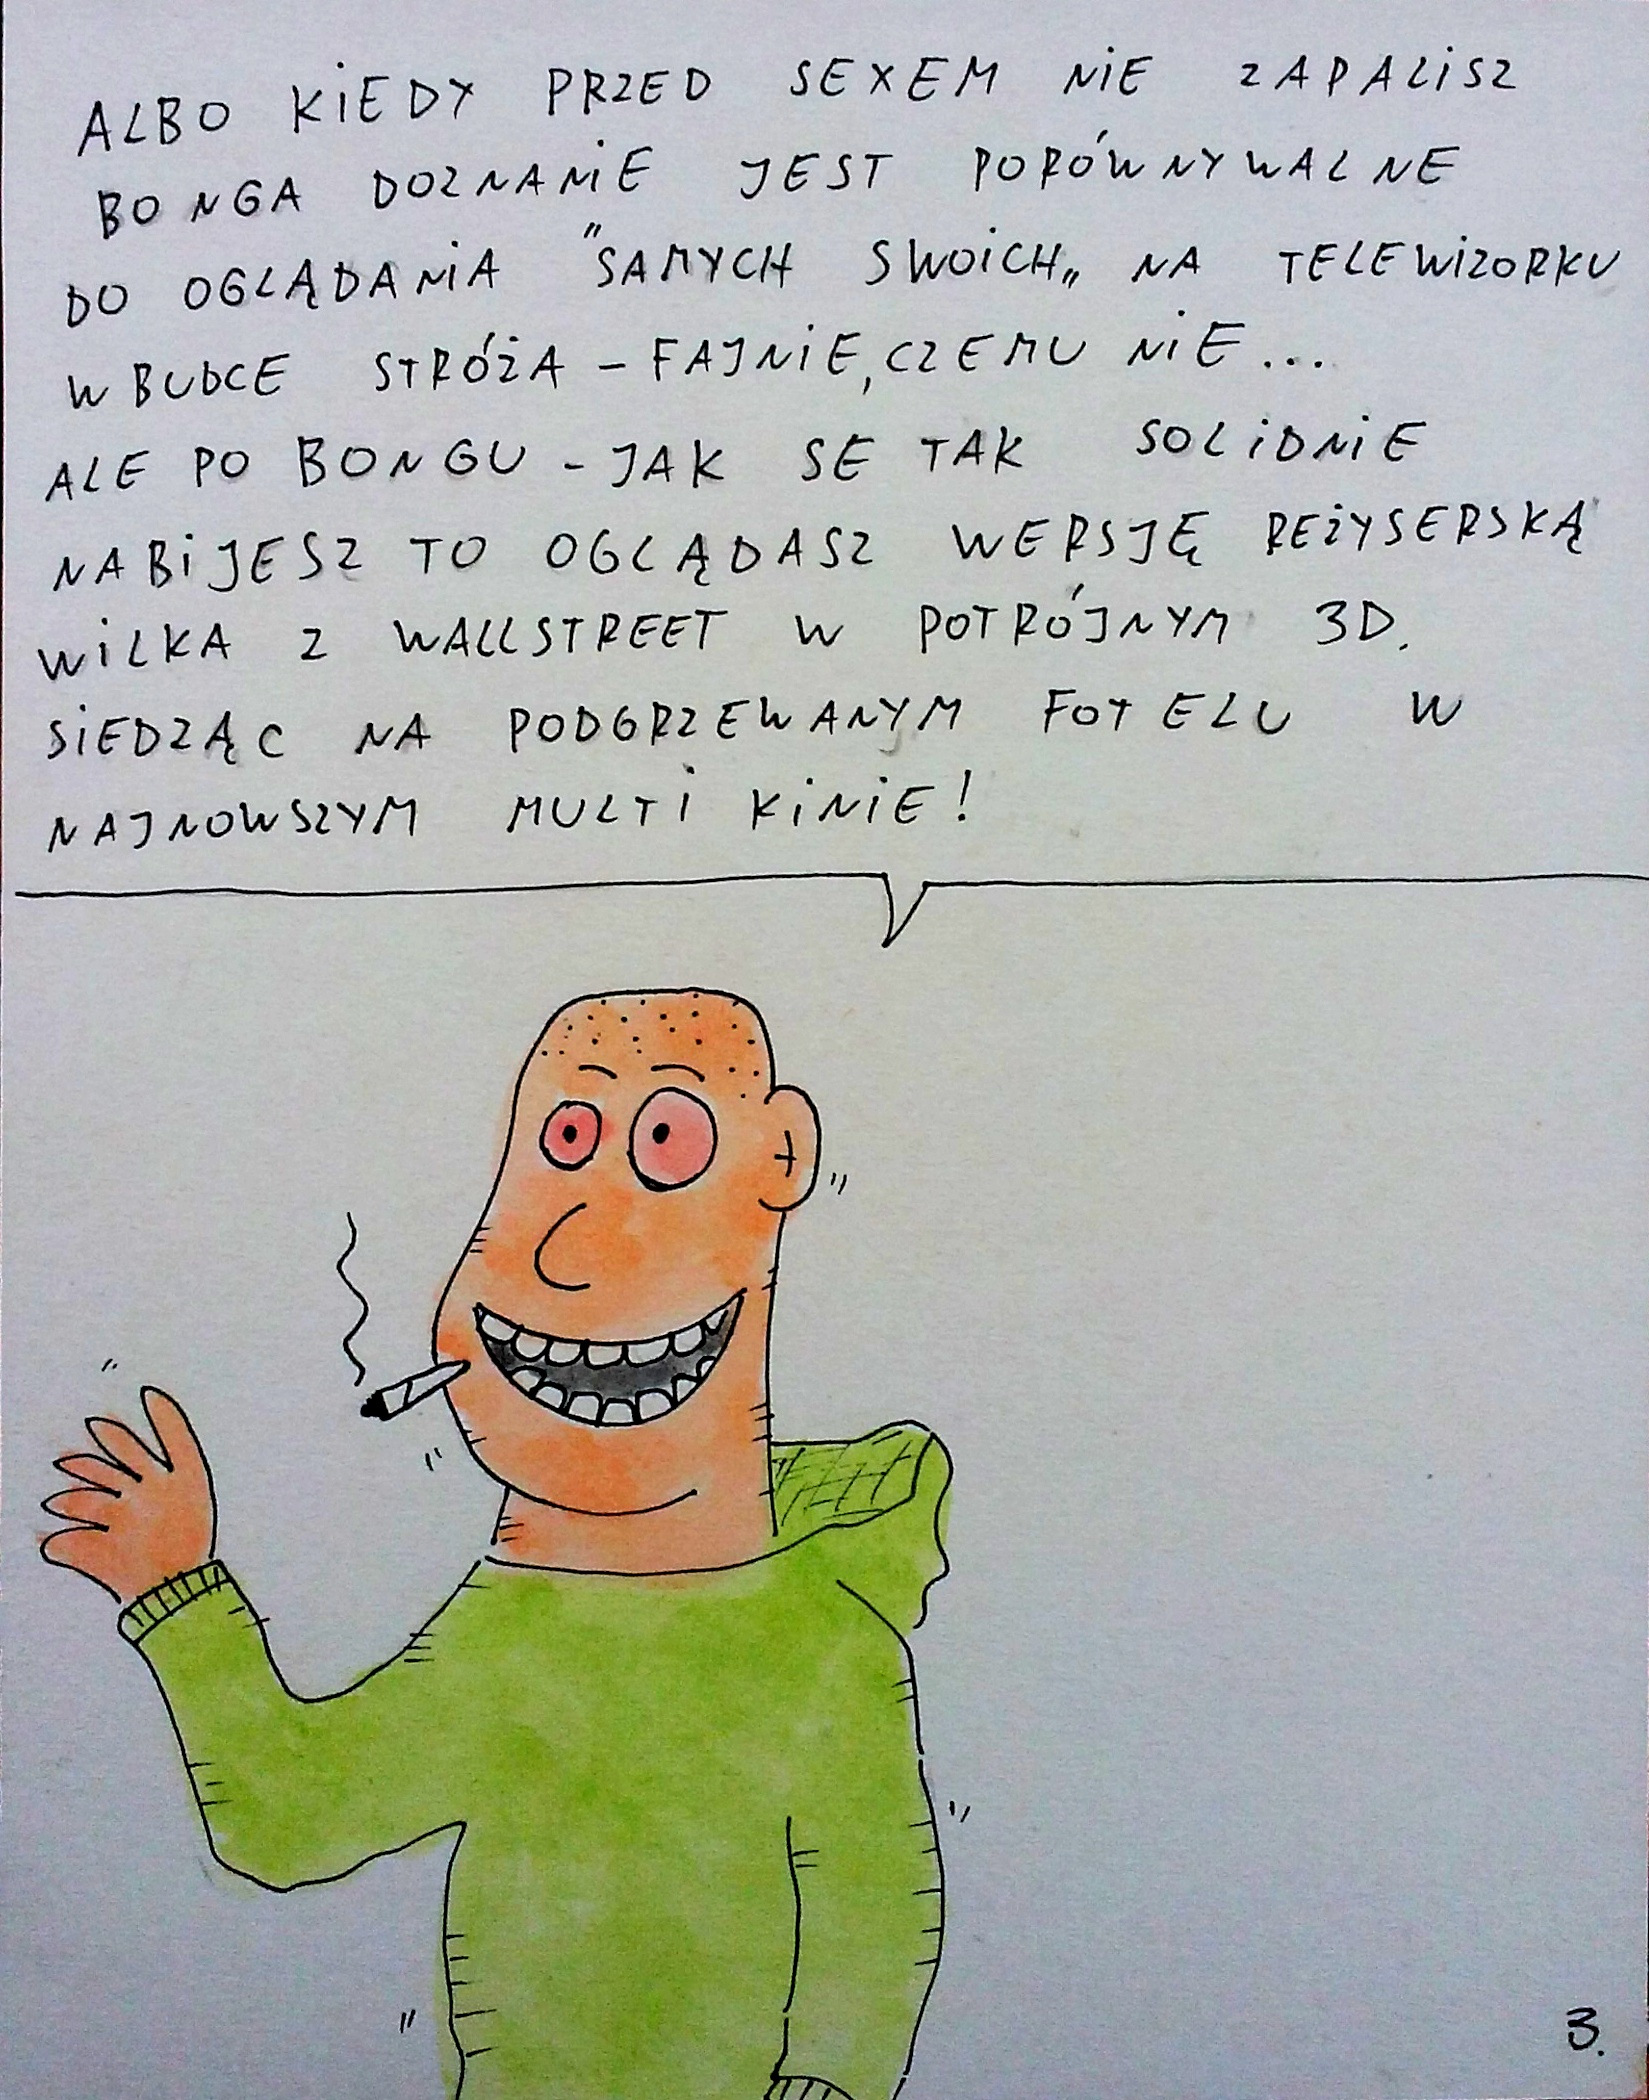 ALBO KiEDY PRZED SEXEM NiE ZAPALiSZ
BONGA DOZNANiE JEST PORÓWNYWALNE
DO OGLĄDANiA "SAMYCH SWOiCH„ NA TELEWiZORKU
W BUDCE STRÓŻA - FAJNiE, CZEMU NiE...
ALE PO BONGU - JAK SE TAK SOLiDNiE
NABiJESZ TO OGLĄDASZ WERSJĘ REŻYSERSKĄ
WiLKA Z WALLSTREET W POTRÓJNYM 3D.
SiEDZĄC NA PODGRZEWANYM FOTELU W
NAJNOWSZYM MULTI KiNiE!
3.